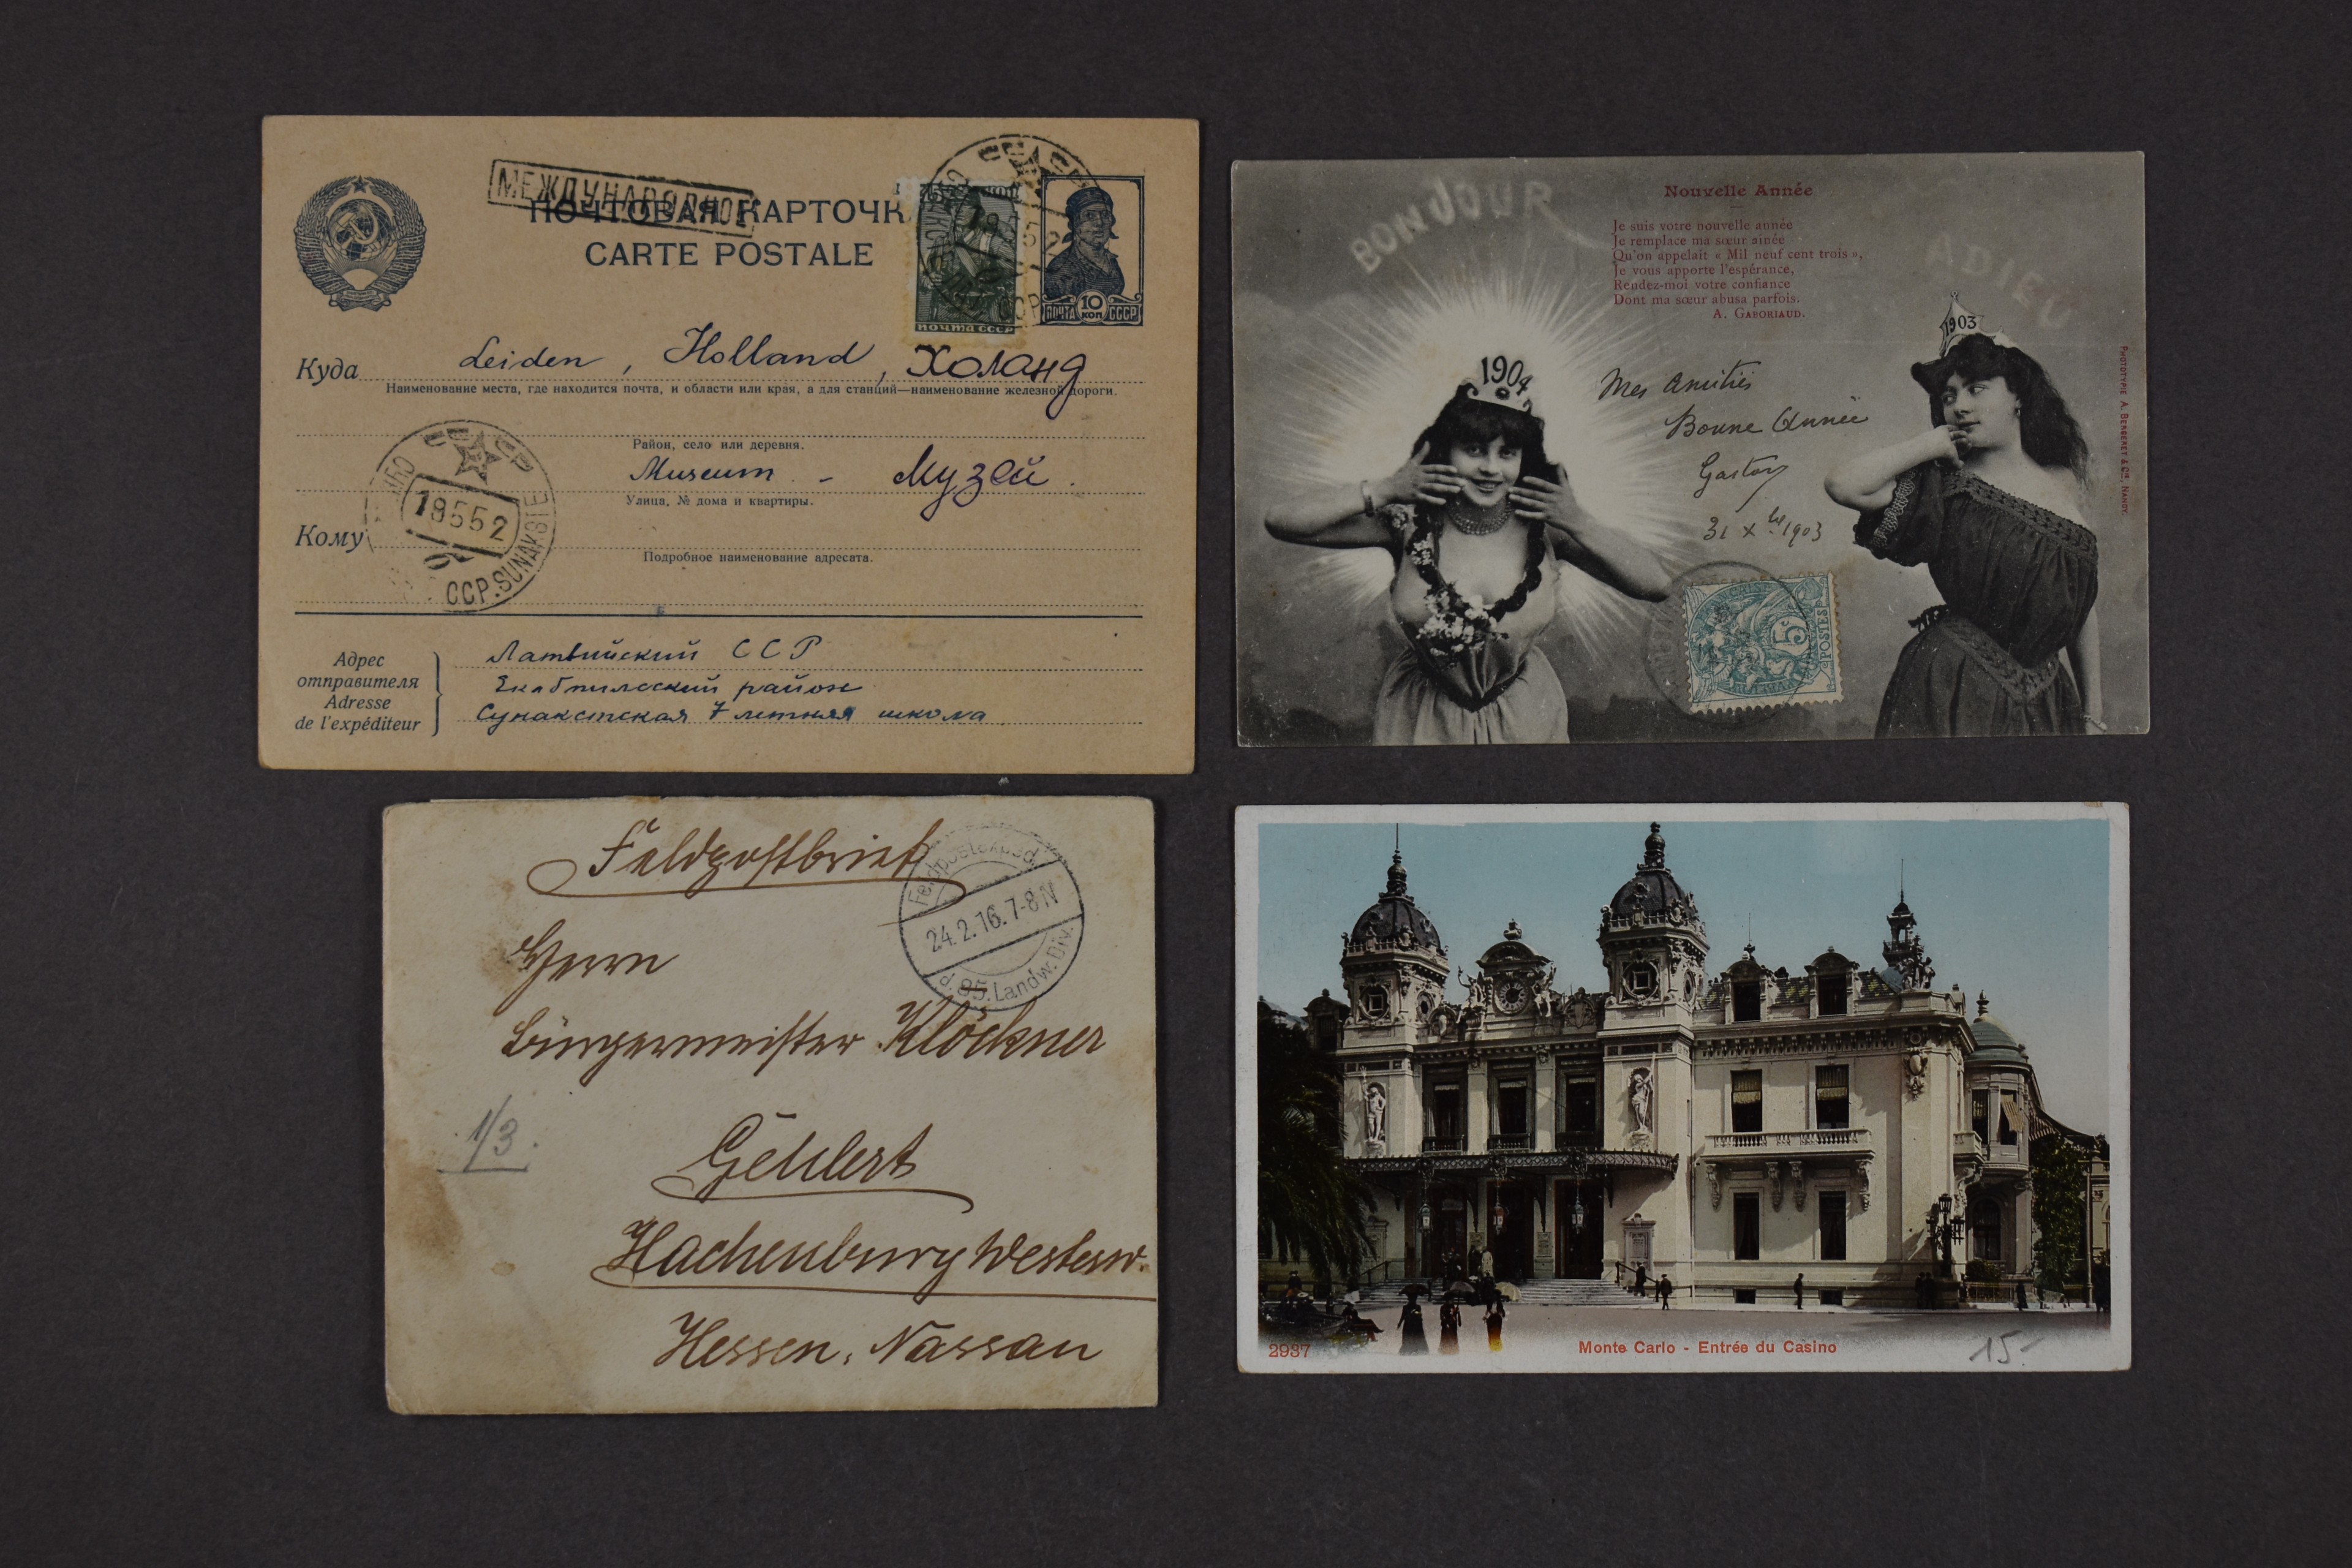 МЕЖДУНАРОДНОЕ
ПОЧТОВАЯ КАРТОЧК
CARTE POSTALE
ПОЧТА СССР
10 КОП
ПОЧТА СССР
Куда Leiden, Holland, Холанд
Наименование места, где находится почта, и области или края, а для станций—наименование железной дороги.
Район, село или деревня.
Museum - Музей.
Улица, № дома и квартиры.
Кому
Подробное наименование адресата.
СССР
18552
ССР.SUNAKSTE
Адрес
отправителя
Adresse
de l'expéditeur
Латвийский ССР
Екабпилсский район
Сунакстская 7 летняя школа
BONJOUR
ADIEU
Nouvelle Année
Je suis votre nouvelle année
Je remplace ma sœur ainée
Qu'on appelait « Mil neuf cent trois »,
Je vous apporte l'espérance,
Rendez-moi votre confiance
Dont ma sœur abusa parfois.
A. GABORIAUD.
1904
1903
Mes Amitiés
Bonne Année
Gaston
31 Xbre 1903
5
POSTES
PHOTOTYPIE A. BERGERET & Cie, NANCY.
Feldpostbrief
Feldpostexped.
24.2.16.7-8N
d. 85. Landw. Div.
Herrn
Bürgermeister Klöckner
Gehlert
1/3.
Hachenburg Westerw.
Hessen, Nassau
2937
Monte Carlo - Entrée du Casino
15-